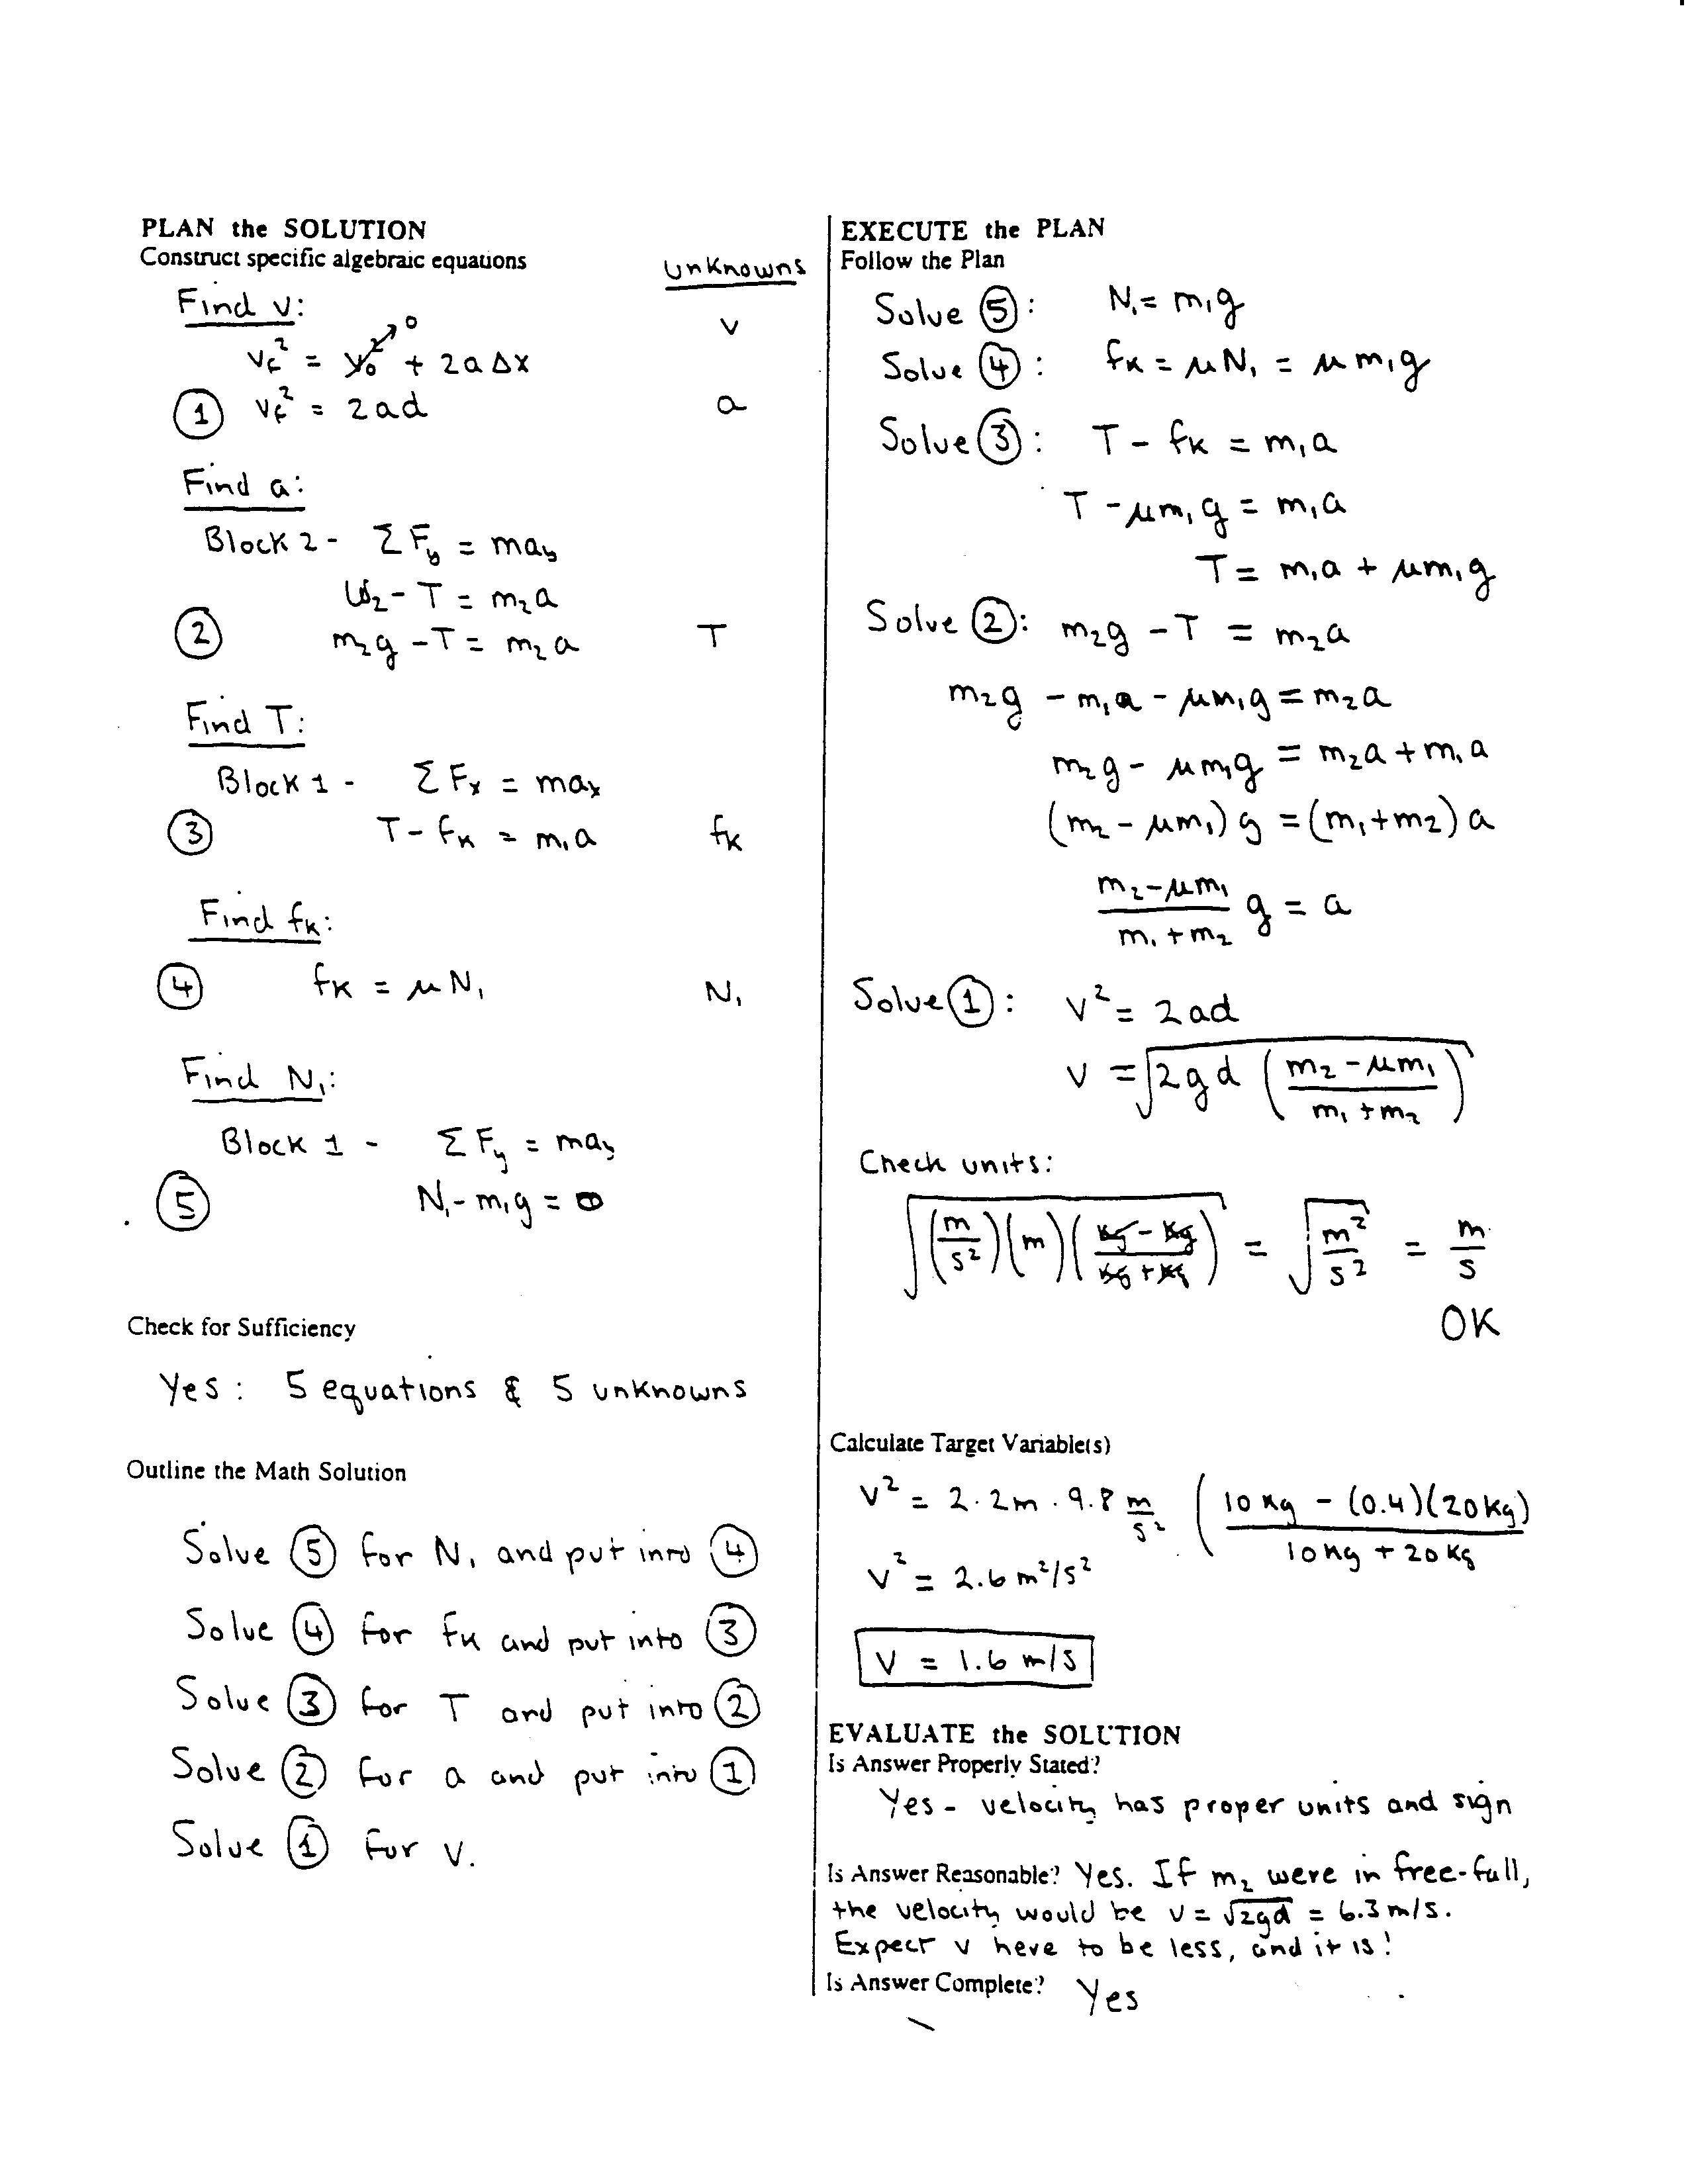 PLAN the SOLUTION
Construct specific algebraic equations
Unknowns
Find v:
v
v_f² = v₀² → 0 + 2aΔx
① v_f² = 2ad
a
Find a:
Block 2 - ΣF_y = ma_y
W₂ - T = m₂a
② m₂g - T = m₂a
T
Find T:
Block 1 - ΣF_x = ma_x
③ T - f_k = m₁a
f_k
Find f_k:
④ f_k = μN₁
N₁
Find N₁:
Block 1 - ΣF_y = ma_y
⑤ N₁ - m₁g = 0
Check for Sufficiency
Yes: 5 equations & 5 unknowns
Outline the Math Solution
Solve ⑤ for N₁ and put into ④
Solve ④ for f_k and put into ③
Solve ③ for T and put into ②
Solve ② for a and put into ①
Solve ① for v.
EXECUTE the PLAN
Follow the Plan
Solve ⑤: N₁ = m₁g
Solve ④: f_k = μN₁ = μm₁g
Solve ③: T - f_k = m₁a
T - μm₁g = m₁a
T = m₁a + μm₁g
Solve ②: m₂g - T = m₂a
m₂g - m₁a - μm₁g = m₂a
m₂g - μm₁g = m₂a + m₁a
(m₂ - μm₁)g = (m₁+m₂)a
(m₂-μm₁)/(m₁+m₂) g = a
Solve ①: v² = 2ad
v = √(2gd ((m₂-μm₁)/(m₁+m₂)))
Check units:
√((m/s²)(m)((kg-kg)/(kg+kg))) = √(m²/s²) = m/s
OK
Calculate Target Variable(s)
v² = 2·2m·9.8 m/s² ((10kg - (0.4)(20kg))/(10kg + 20kg)
v² = 2.6 m²/s²
v = 1.6 m/s
EVALUATE the SOLUTION
Is Answer Properly Stated?
Yes - velocity has proper units and sign
Is Answer Reasonable? Yes. If m₂ were in free-fall,
the velocity would be v = √2gd = 6.3 m/s.
Expect v here to be less, and it is!
Is Answer Complete? Yes